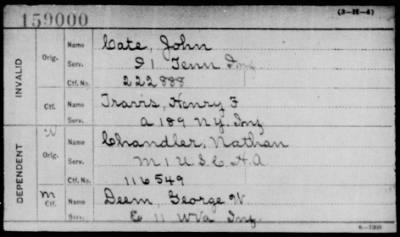 159000
(3-H-4)
INVALID
Orig.
Name Cate, John
Serv. D 1 Tenn Inf
Ctf. No. 222888
Ctf.
Name Travis, Henry F
Serv. A 189 N.Y. Inf
DEPENDENT
W
Orig.
Name Chandler, Nathan
Serv. M 1 U S C H A
Ctf. No. 116549
M
Ctf.
Name Deem, George W.
Serv. E 11 W Va Inf.